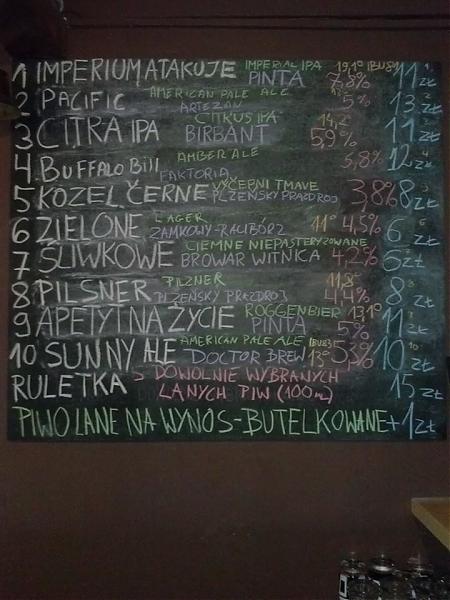 1 IMPERIUM ATAKUJE IMPERIAL IPA PINTA 19,1° IBU 7,8% 11 zŁ
2 PACIFIC AMERICAN PALE ALE ARTEZAN 5% 13 zŁ
3 CITRA IPA CITRUS IPA BIRBANT 5,9% 11 zŁ
4. BUFFALO Bill AMBER ALE FAKTORIA 5,8% 12 zŁ
5 KOZEL ČERNE VÝČEPNI TMAVE PLZEŃSKY PRAZDROJ 3,8% 8 zŁ
6 ZIELONE LAGER ZAMKOWY-RACIBÓRZ 11° 4,5% 6 zŁ
7 ŚLIWKOWE CIEMNE NIEPASTERYZOWANE BROWAR WITNICA 4,2% 6 zŁ
8 PILSNER PILZNER PLZEŃSKY PRAZDROJ 11,8° 4,4% 8 zŁ
9 APETYT NA ŻYCIE ROGGENBIER PINTA 13,1° 5% 11 zŁ
10 SUNNY ALE AMERICAN PALE ALE DOCTOR BREW 13° 5,3% 10 zŁ
RULETKA 5 DOWOLNIE WYBRANYCH 15 zŁ
LANYCH PIW (100ml)
PIWO LANE NA WYNOS-BUTELKOWANE +1 zŁ